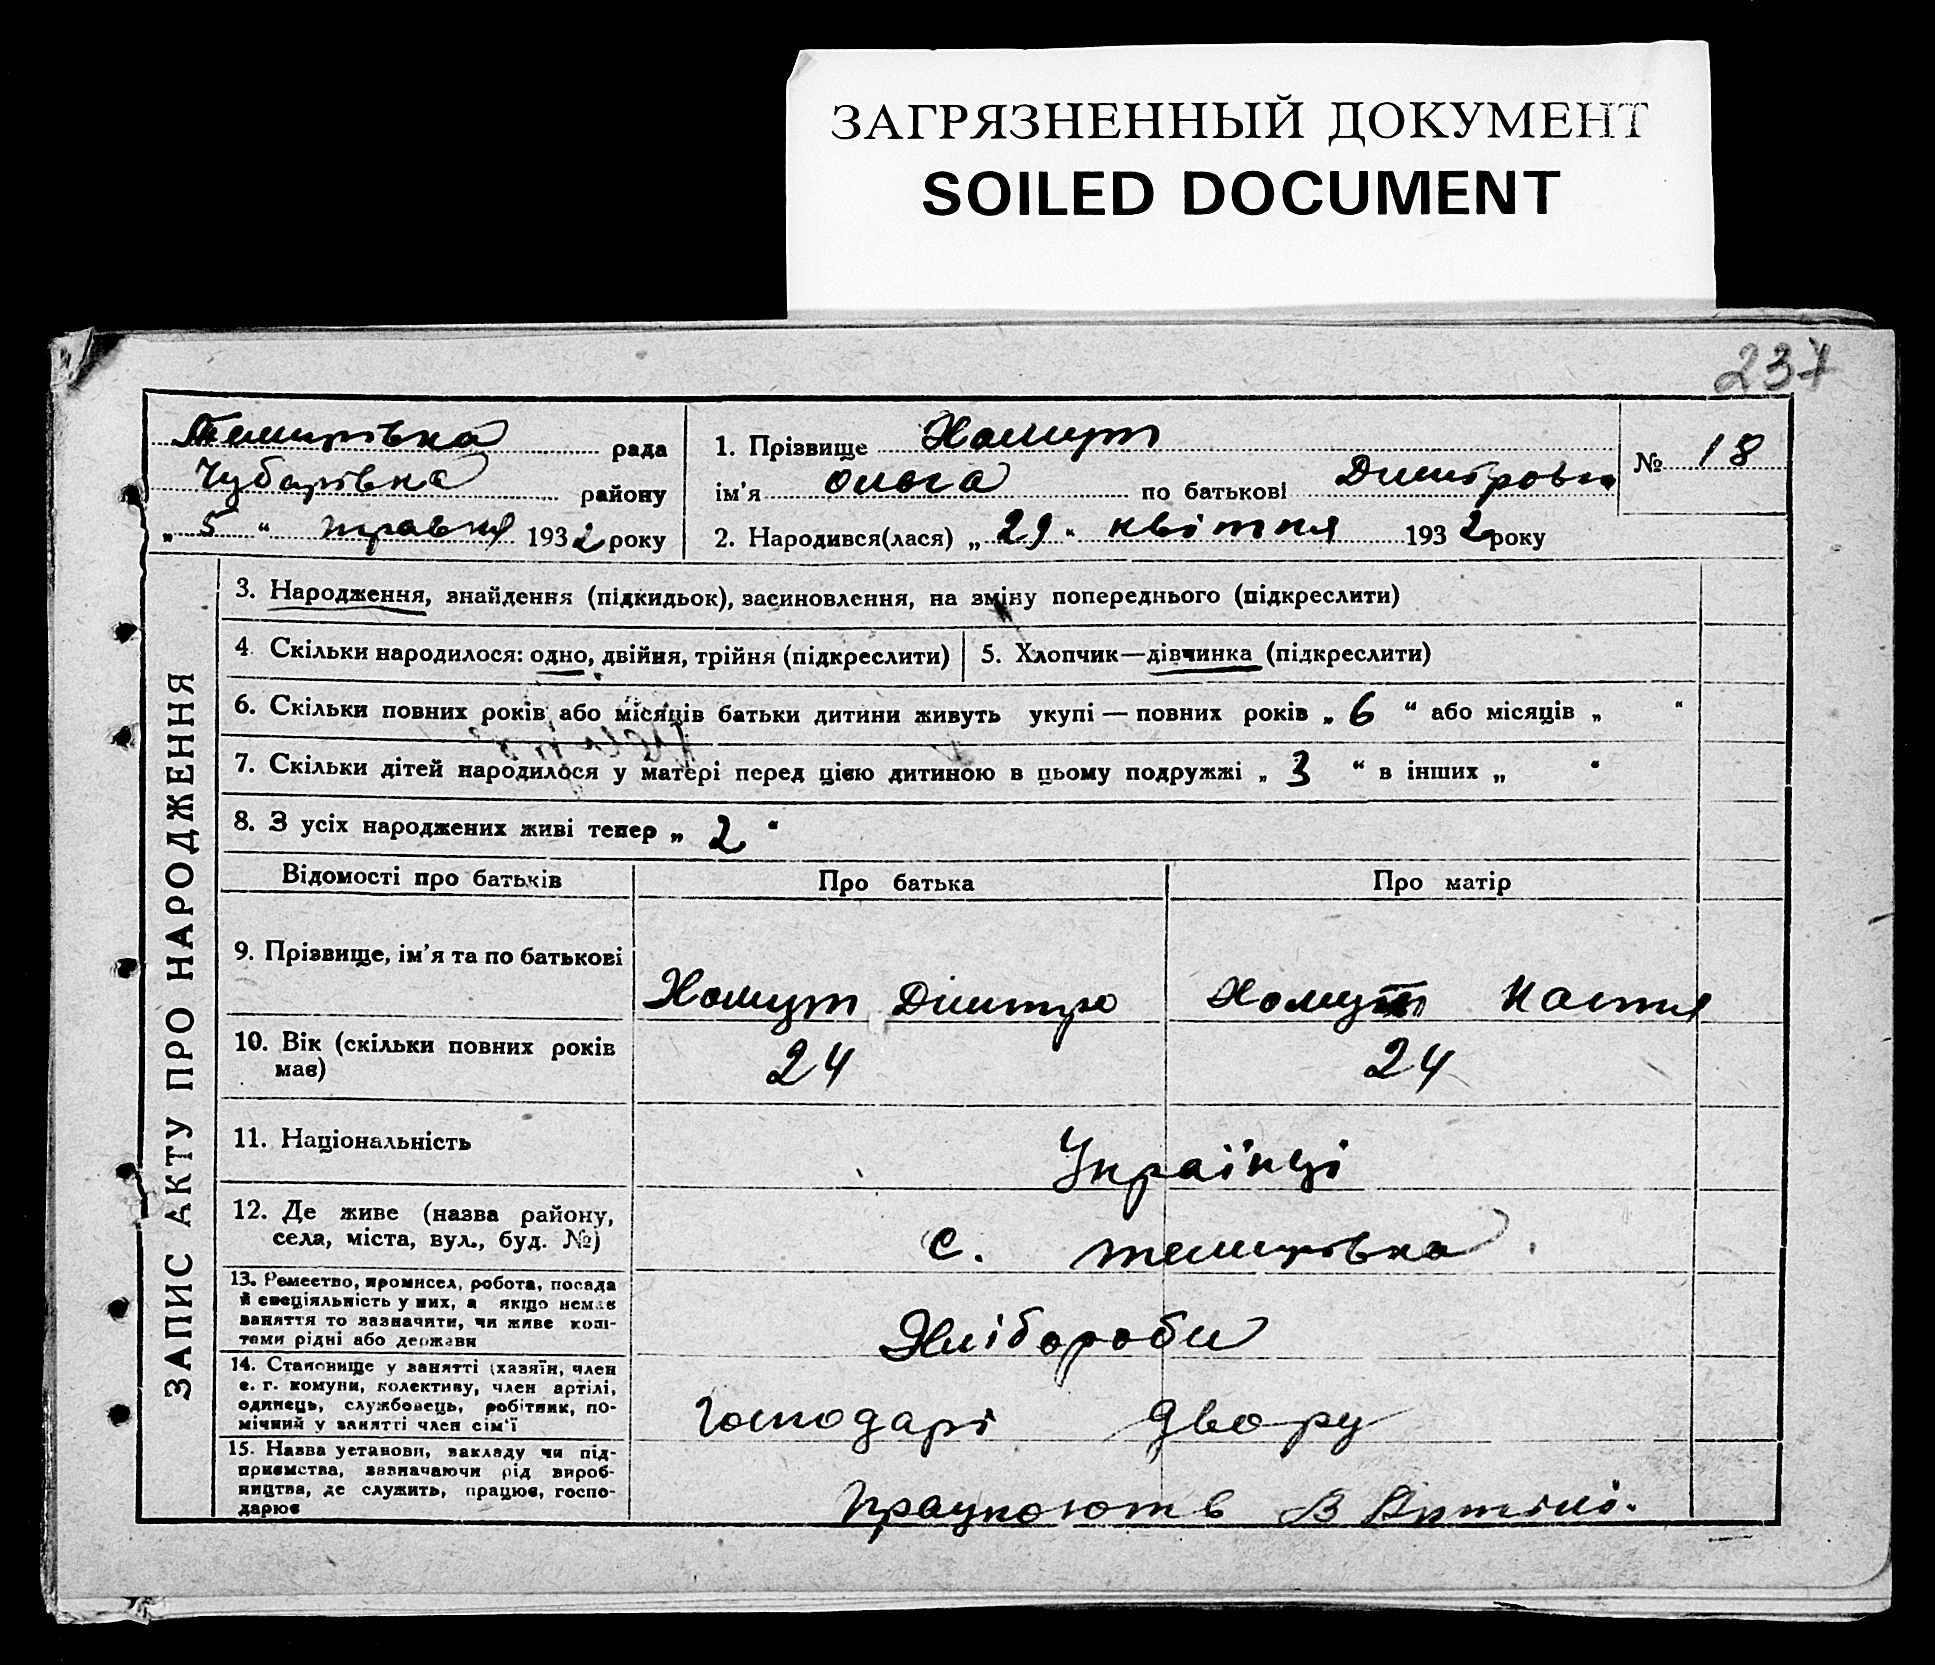 ЗАГРЯЗНЕННЫЙ ДОКУМЕНТ
SOILED DOCUMENT
237
Темирівка рада
Чубарівка району
„ 5 “ травня 1932 року
1. Прізвище Хомут
ім'я Ольга по батькові Дмитровна
2. Народився(лася) „ 29 “ квітня 1932 року
№ 18
ЗАПИС АКТУ ПРО НАРОДЖЕННЯ
3. Народження, знайдення (підкидьок), засиновлення, на зміну попереднього (підкреслити)
4. Скільки народилося: одно, двійня, трійня (підкреслити)
5. Хлопчик—дівчинка (підкреслити)
6. Скільки повних років або місяців батьки дитини живуть укупі — повних років „ 6 “ або місяців „ “
7. Скільки дітей народилося у матері перед цією дитиною в цьому подружжі „ 3 “ в інших „ “
8. З усіх народжених живі тепер „ 2 “
Відомості про батьків
Про батька
Про матір
9. Прізвище, ім'я та по батькові
Хомут Дмитро
Хомут Настя
10. Вік (скільки повних років
має)
24
24
11. Національність
Українці
12. Де живе (назва району,
села, міста, вул., буд. №)
с. Темирівка
13. Ремество, промисел, робота, посада
й спеціяльність у них, а якщо немає
заняття то зазначити, чи живе кош-
тами рідні або держави
Хлібороби
14. Становище у занятті (хазяїн, член
с. г. комуни, колективу, член артілі,
одинець, службовець, робітник, по-
мічний у занятті член сім'ї
Господарі двору
15. Назва установи, закладу чи під-
приємства, зазначаючи рід вироб-
ництва, де служить, працює, госпо-
дарює
працюють в Артілі.